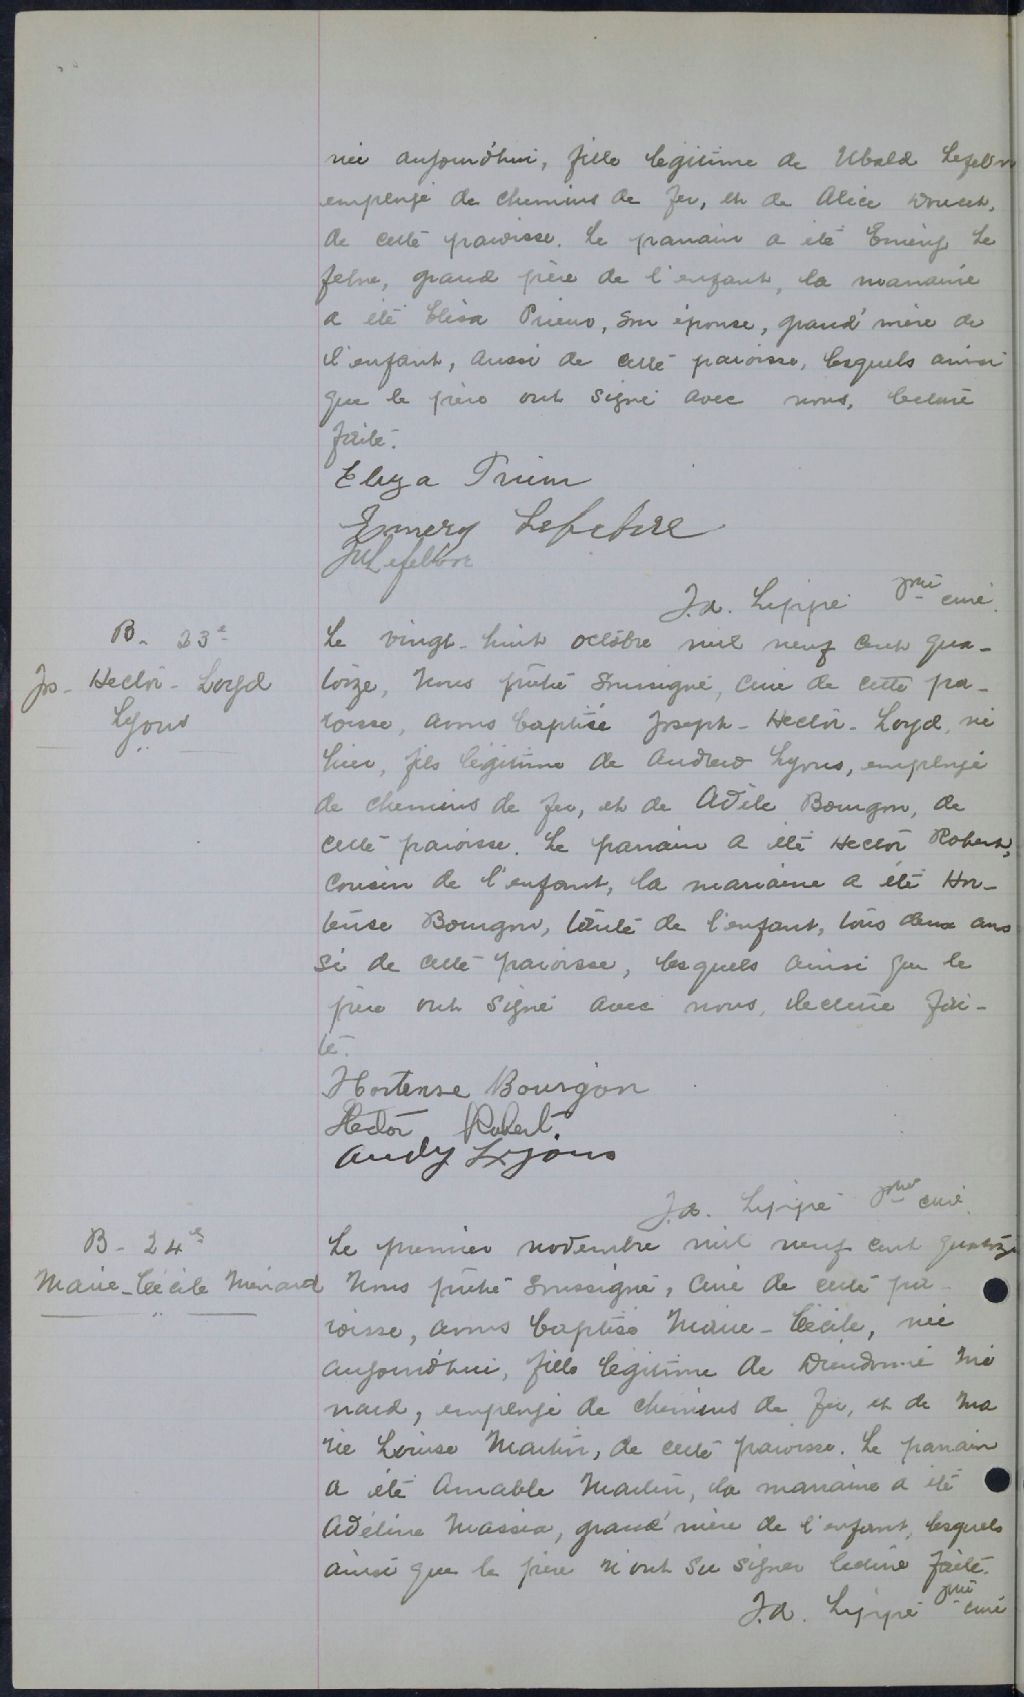 née aujourd'hui, fille légitime de Ubald Lefebvre
employé de chemins de fer, et de Alice Doucet,
de cette paroisse. Le parrain a été Emery Le
febvre, grand père de l'enfant, la marraine
a été Elisa Prieur, son épouse, grand'mère de
l'enfant, aussi de cette paroisse, lesquels ainsi
que le père ont signé avec nous, lecture
faite.
Eliza Prieur
Emery Lefebvre
Lefebvre
J.A. Lippé ptre curé.
B. 23e
Jos-Hector-Loyd
Lyons
Le vingt-huit octobre mil neuf cent qua-
torze, Nous prêtre soussigné, curé de cette pa-
roisse, avons baptisé Joseph-Hector-Loyd, né
hier, fils légitime de Andrew Lyons, employé
de chemins de fer, et de Adèle Bourgon, de
cette paroisse. Le parrain a été Hector Robert,
cousin de l'enfant, la marraine a été Hor-
tense Bourgon, tante de l'enfant, tous deux aus
si de cette paroisse, lesquels ainsi que le
père ont signé avec nous, lecture fai-
te.
Hortense Bourgon
Hector Robert
Andy Lyons
J.A. Lippé ptre curé.
B. 24e
Marie-Cécile Ménard
Le premier novembre mil neuf cent quatorze
Nous prêtre soussigné, curé de cette pa-
roisse, avons baptisé Marie-Cécile, née
aujourd'hui, fille légitime de Dieudonné Mé
nard, employé de chemins de fer, et de Ma
rie Louise Martin, de cette paroisse. Le parrain
a été Amable Martin, la marraine a été
Adéline Massia, grand'mère de l'enfant, lesquels
ainsi que le père n'ont su signer lecture faite.
J.A. Lippé ptre curé